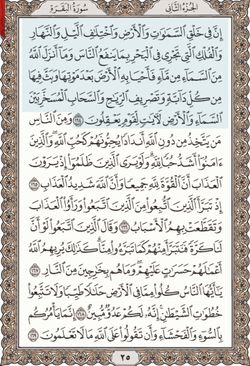 الجُزْءُ الثَّانِي
سُورَةُ البَقَرَةِ
إِنَّ فِي خَلْقِ ٱلسَّمَٰوَٰتِ وَٱلْأَرْضِ وَٱخْتِلَٰفِ ٱلَّيْلِ وَٱلنَّهَارِ
وَٱلْفُلْكِ ٱلَّتِي تَجْرِي فِي ٱلْبَحْرِ بِمَا يَنفَعُ ٱلنَّاسَ وَمَآ أَنزَلَ ٱللَّهُ
مِنَ ٱلسَّمَآءِ مِن مَّآءٍ فَأَحْيَا بِهِ ٱلْأَرْضَ بَعْدَ مَوْتِهَا وَبَثَّ فِيهَا
مِن كُلِّ دَآبَّةٍ وَتَصْرِيفِ ٱلرِّيَٰحِ وَٱلسَّحَابِ ٱلْمُسَخَّرِ بَيْنَ
ٱلسَّمَآءِ وَٱلْأَرْضِ لَأٓيَٰتٍ لِّقَوْمٍ يَعْقِلُونَ ١٦٤ وَمِنَ ٱلنَّاسِ
مَن يَتَّخِذُ مِن دُونِ ٱللَّهِ أَندَادًا يُحِبُّونَهُمْ كَحُبِّ ٱللَّهِ وَٱلَّذِينَ
ءَامَنُوٓا۟ أَشَدُّ حُبًّا لِّلَّهِ وَلَوْ يَرَى ٱلَّذِينَ ظَلَمُوٓا۟ إِذْ يَرَوْنَ
ٱلْعَذَابَ أَنَّ ٱلْقُوَّةَ لِلَّهِ جَمِيعًا وَأَنَّ ٱللَّهَ شَدِيدُ ٱلْعَذَابِ ١٦٥
إِذْ تَبَرَّأَ ٱلَّذِينَ ٱتُّبِعُوا۟ مِنَ ٱلَّذِينَ ٱتَّبَعُوا۟ وَرَأَوُا۟ ٱلْعَذَابَ
وَتَقَطَّعَتْ بِهِمُ ٱلْأَسْبَابُ ١٦٦ وَقَالَ ٱلَّذِينَ ٱتَّبَعُوا۟ لَوْ أَنَّ
لَنَا كَرَّةً فَنَتَبَرَّأَ مِنْهُمْ كَمَا تَبَرَّءُوا۟ مِنَّا كَذَٰلِكَ يُرِيهِمُ ٱللَّهُ
أَعْمَٰلَهُمْ حَسَرَٰتٍ عَلَيْهِمْ وَمَا هُم بِخَٰرِجِينَ مِنَ ٱلنَّارِ ١٦٧
يَٰٓأَيُّهَا ٱلنَّاسُ كُلُوا۟ مِمَّا فِي ٱلْأَرْضِ حَلَٰلًا طَيِّبًا وَلَا تَتَّبِعُوا۟
خُطُوَٰتِ ٱلشَّيْطَٰنِ إِنَّهُۥ لَكُمْ عَدُوٌّ مُّبِينٌ ١٦٨ إِنَّمَا يَأْمُرُكُم
بِٱلسُّوٓءِ وَٱلْفَحْشَآءِ وَأَن تَقُولُوا۟ عَلَى ٱللَّهِ مَا لَا تَعْلَمُونَ ١٦٩
٢٥